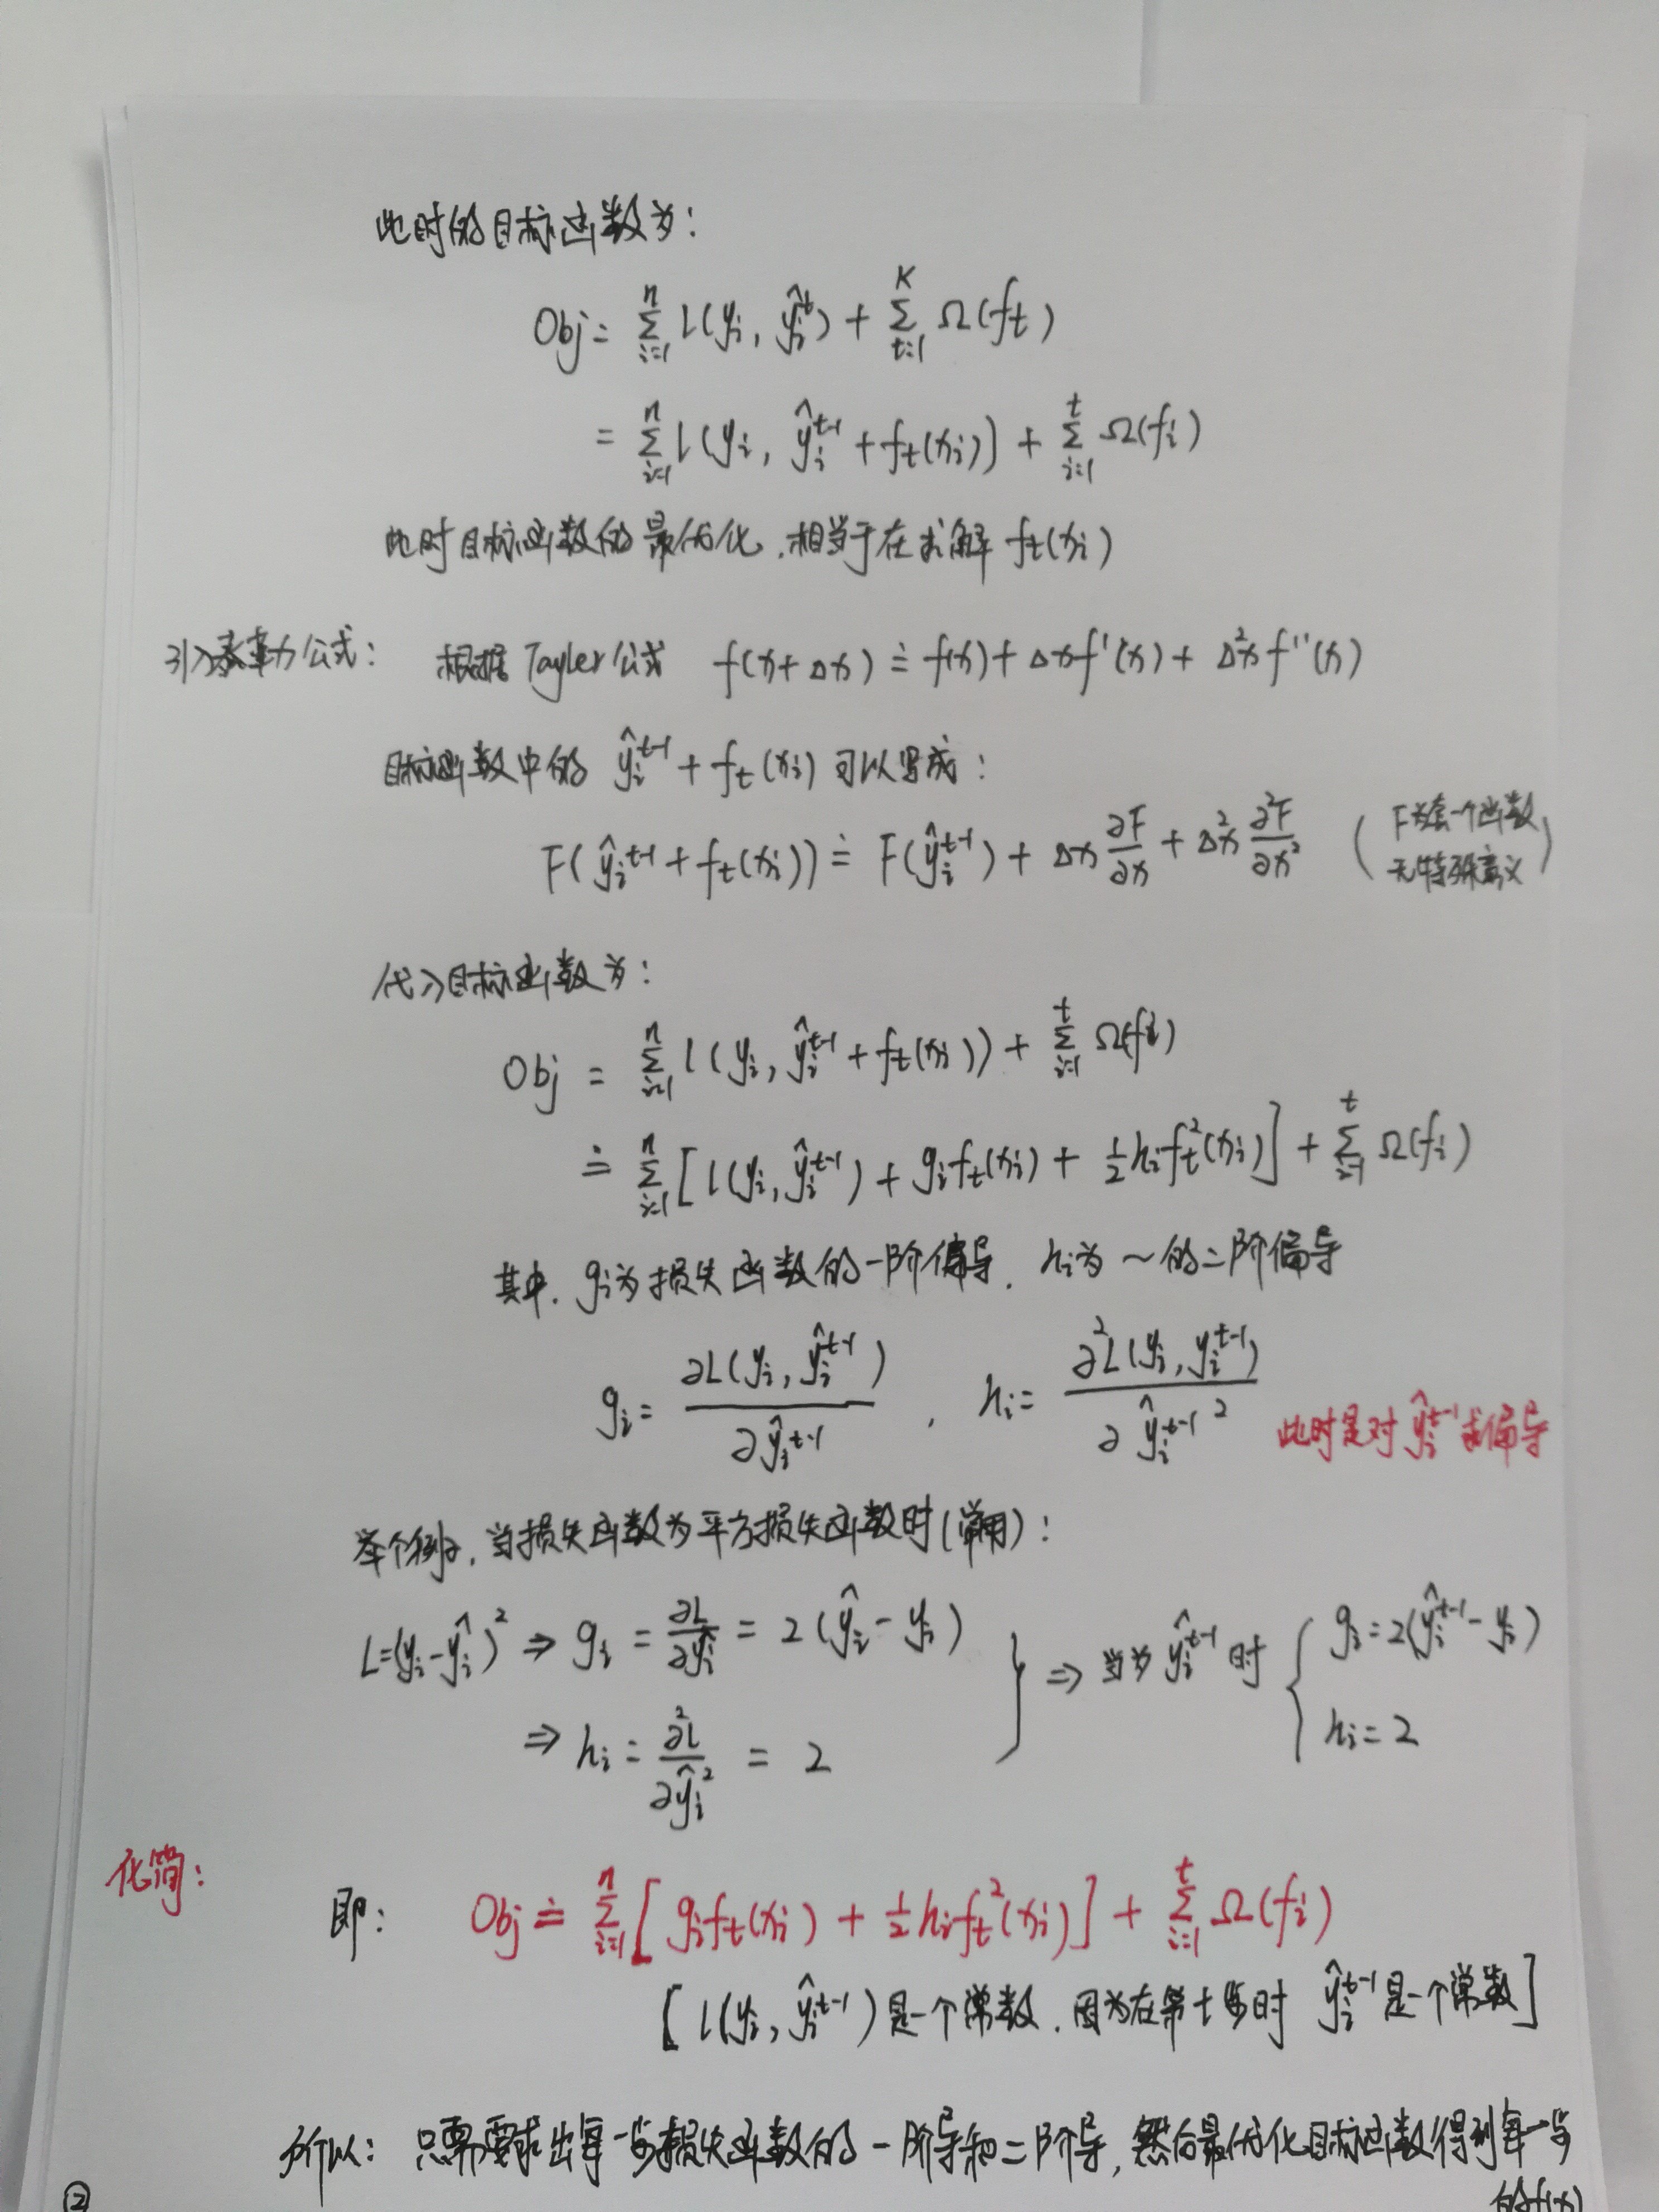 此时的目标函数为:
Obj = Σ_{i=1}^{n} l(y_i, ŷ_i^t) + Σ_{t=1}^{K} Ω(f_t)
= Σ_{i=1}^{n} l(y_i, ŷ_i^{t-1} + f_t(x_i)) + Σ_{i=1}^{t} Ω(f_i)
此时目标函数的最优化,相当于在求解 f_t(x_i)
引入泰勒公式: 根据Tayler公式 f(x+Δx) ≐ f(x) + Δx f'(x) + Δ²x f''(x)
目标函数中的 ŷ_i^{t-1} + f_t(x_i) 可以写成:
F(ŷ_i^{t-1} + f_t(x_i)) ≐ F(ŷ_i^{t-1}) + Δx ∂F/∂x + Δ²x ∂²F/∂x² (F为套一个函数 无特殊意义)
代入目标函数为:
Obj = Σ_{i=1}^{n} l(y_i, ŷ_i^{t-1} + f_t(x_i)) + Σ_{i=1}^{t} Ω(f_i)
≐ Σ_{i=1}^{n} [l(y_i, ŷ_i^{t-1}) + g_i f_t(x_i) + ½ h_i f_t²(x_i)] + Σ_{i=1}^{t} Ω(f_i)
其中. g_i为损失函数的一阶偏导, h_i为~的二阶偏导
g_i = ∂L(y_i, ŷ_i^{t-1}) / ∂ŷ_i^{t-1} , h_i = ∂²L(y_i, y_i^{t-1}) / ∂ŷ_i^{t-1 2} 此时是对 ŷ_i^{t-1} 求偏导
举个例子, 当损失函数为平方损失函数时(常用):
L=(y_i-ŷ_i)² ⇒ g_i = ∂L/∂ŷ_i = 2(ŷ_i - y_i) } ⇒ 当为 ŷ_i^{t-1} 时 { g_i=2(ŷ_i^{t-1} - y_i)
⇒ h_i = ∂²L/∂ŷ_i² = 2 h_i = 2
化简:
即: Obj ≐ Σ_{i=1}^{n} [g_i f_t(x_i) + ½ h_i f_t²(x_i)] + Σ_{i=1}^{t} Ω(f_i)
[l(y_i, ŷ_i^{t-1}) 是一个常数, 因为在第 t 步时 ŷ_i^{t-1} 是一个常数]
所以: 只需要求出每一步损失函数的一阶导和二阶导, 然后最优化目标函数得到每一步
的f(x)
②